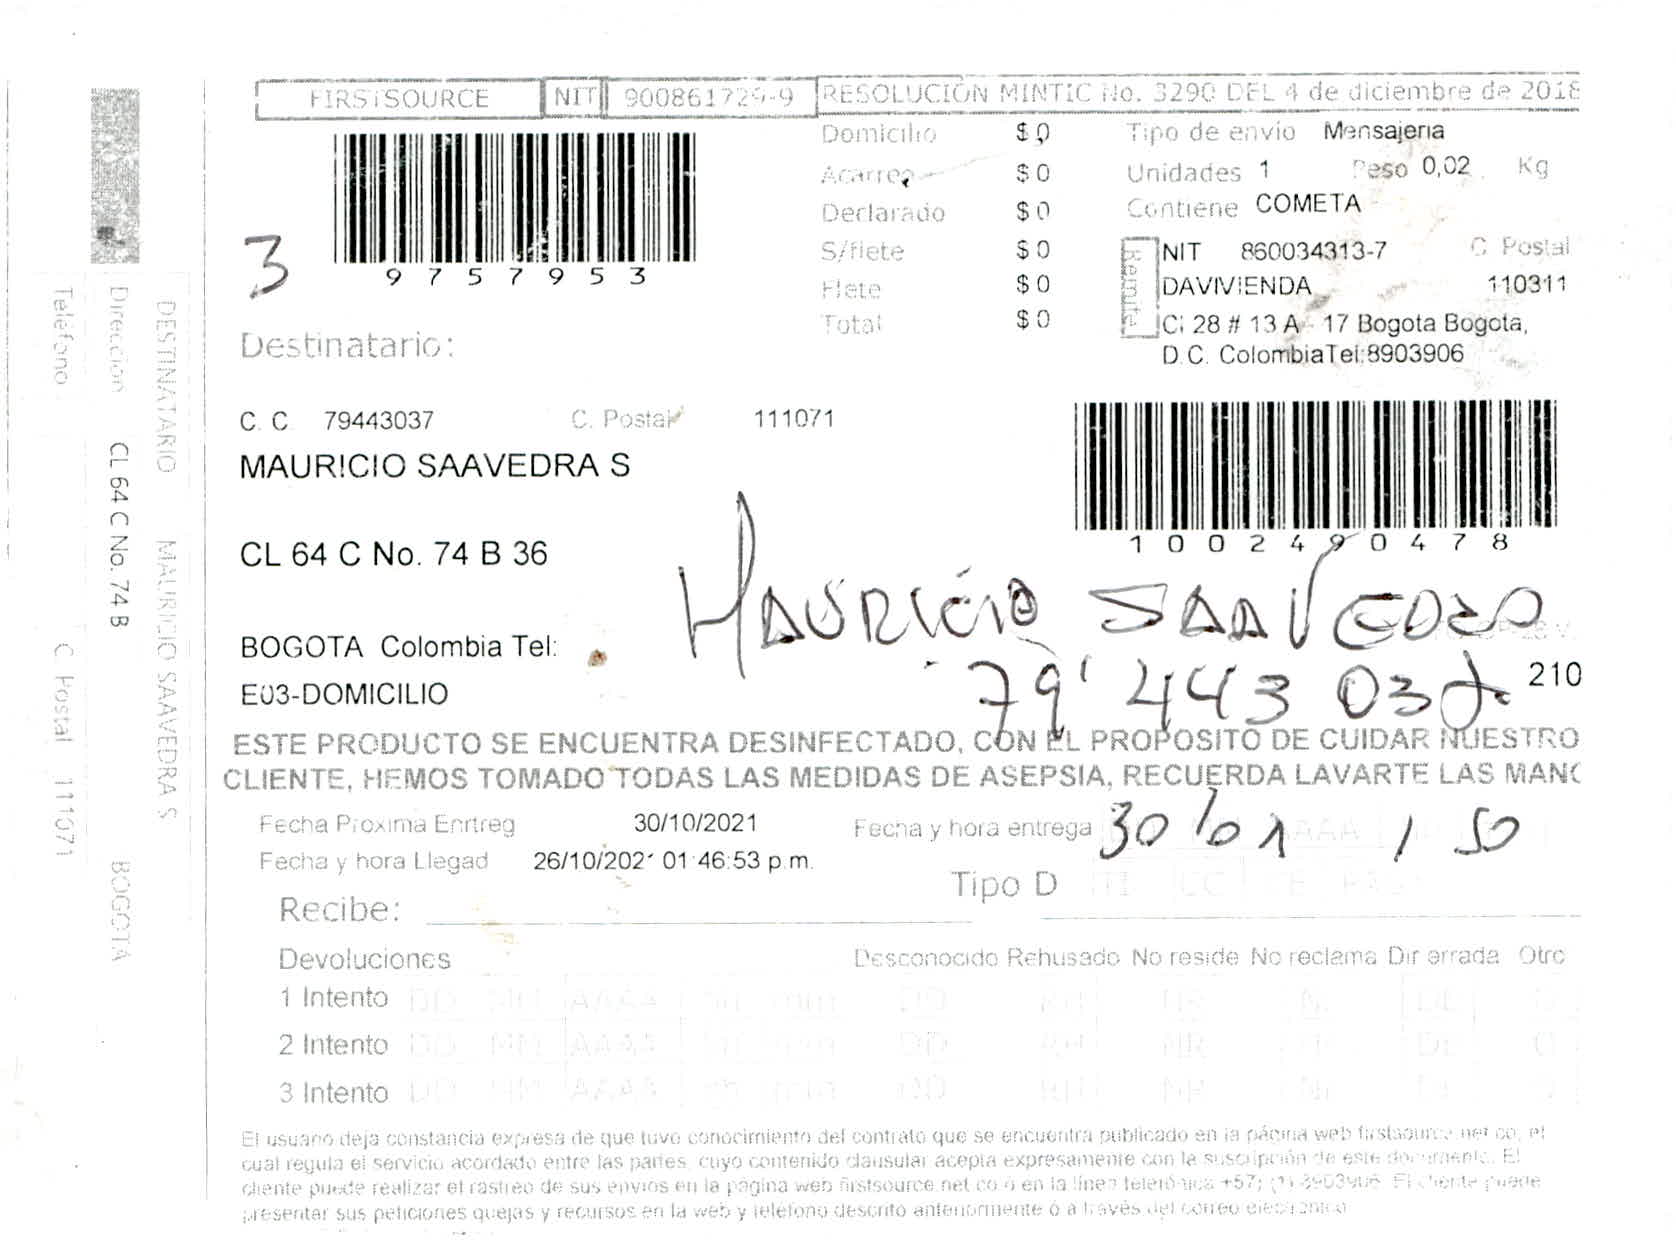 FIRSTSOURCE NIT 900861729-9 RESOLUCIÓN MINTIC No. 3290 DEL 4 de diciembre de 2018
Domicilio $ 0 Tipo de envío Mensajeria
Acarreo $ 0 Unidades 1 Peso 0,02 Kg
Declarado $ 0 Contiene COMETA
S/flete $ 0
Flete $ 0
Total $ 0
Remite
NIT 860034313-7 C Postal
DAVIVIENDA 110311
Cl 28 # 13 A - 17 Bogota Bogota,
D.C. ColombiaTel:8903906
9757953
3
Destinatario:
C. C. 79443037 C. Postal 111071
MAURICIO SAAVEDRA S
1002490478
CL 64 C No. 74 B 36
MAURICIO SAAVEDRA
BOGOTA Colombia Tel:
79'443 037
210
E03-DOMICILIO
ESTE PRODUCTO SE ENCUENTRA DESINFECTADO, CON EL PROPOSITO DE CUIDAR NUESTRO
CLIENTE, HEMOS TOMADO TODAS LAS MEDIDAS DE ASEPSIA, RECUERDA LAVARTE LAS MANO
Fecha Proxima Enrtreg 30/10/2021 Fecha y hora entrega 30
Fecha y hora Llegad 26/10/2021 01:46:53 p.m.
Tipo D TI CC CE
Recibe:
Devoluciones Desconocido Rehusado No reside No reclama Dir errada Otro
1 Intento DD MM AAAA hh mm DD RH NR NL DE O
2 Intento DD MM AAAA hh mm DD RH NR DE O
3 Intento DD MM AAAA hh mm DD RH NR NL DE O
El usuario deja constancia expresa de que tuvo conocimiento del contrato que se encuentra publicado en la página web firstsource.net.co, el
cual regula el servicio acordado entre las partes, cuyo contenido clausular acepta expresamente con la suscripción de este documento. El
cliente puede realizar el rastreo de sus envios en la página web firstsource.net.co ó en la línea telefónica +57; (1) 8903906. El cliente puede
presentar sus peticiones quejas y recursos en la web y teléfono descrito anteriormente o a través del correo electrónico
DESTINATARIO MAURICIO SAAVEDRA S
Dirección CL 64 C No. 74 B BOGOTA
Teléfono C. Postal 111071